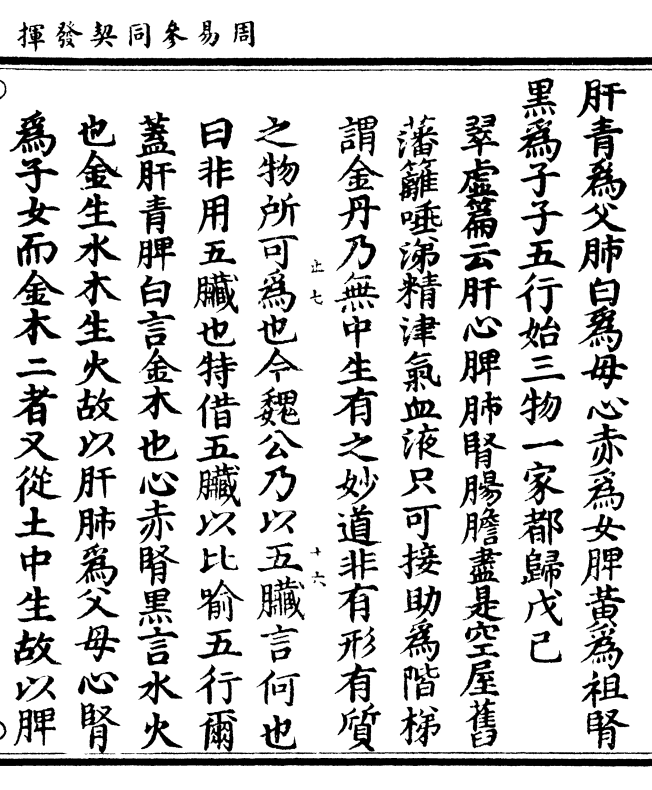 周易參同契發揮
肝青爲父肺白爲母心赤爲女脾黃爲祖腎
黑爲子子五行始三物一家都歸戊己
翠虛篇云肝心脾肺腎腸膽盡是空屋舊
藩籬唾涕精津氣血液只可接助爲階梯
謂金丹乃無中生有之妙道非有形有質
止七
十六
之物所可爲也今魏公乃以五臟言何也
曰非用五臟也特借五臟以比喻五行爾
蓋肝青脾白言金木也心赤腎黑言水火
也金生水木生火故以肝肺爲父母心腎
爲子女而金木二者又從土中生故以脾